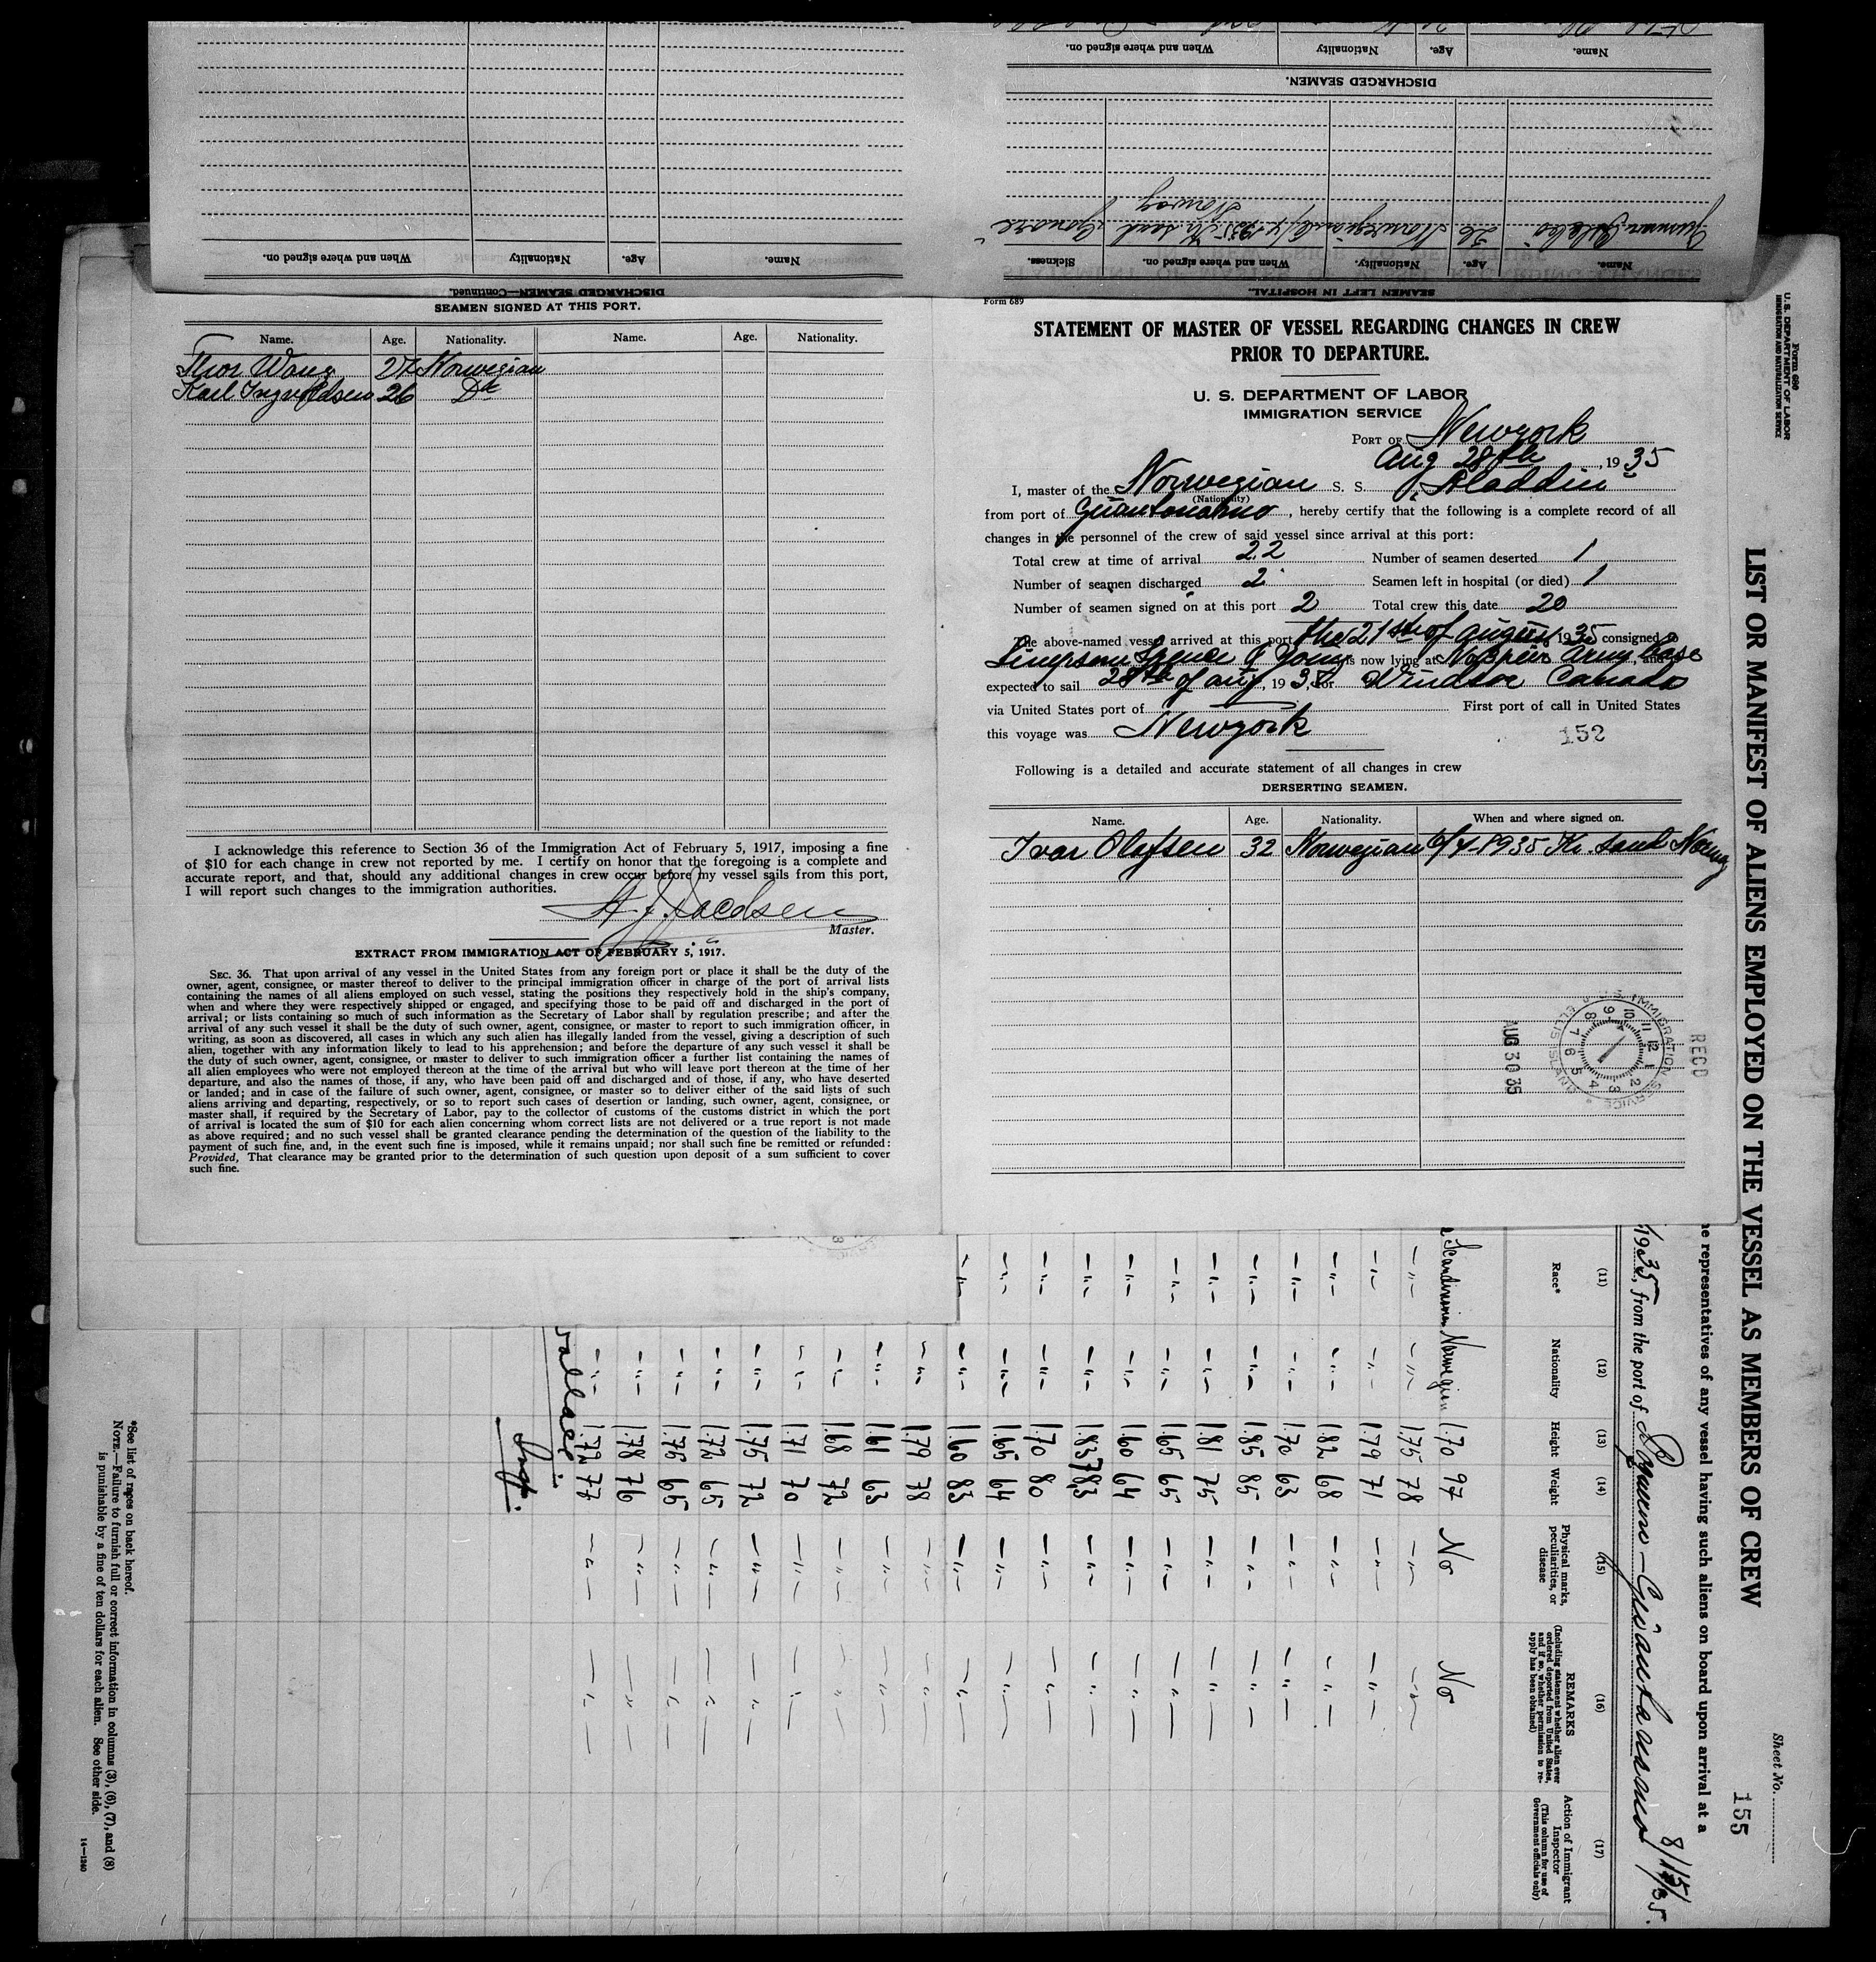 SEAMEN SIGNED AT THIS PORT.
Name. Age. Nationality. Name. Age. Nationality.
Thor Wang 27 Norwegian
Karl Ingvoldsen 26 Do
I acknowledge this reference to Section 36 of the Immigration Act of February 5, 1917, imposing a fine
of $10 for each change in crew not reported by me. I certify on honor that the foregoing is a complete and
accurate report, and that, should any additional changes in crew occur before my vessel sails from this port,
I will report such changes to the immigration authorities.
Master.
EXTRACT FROM IMMIGRATION ACT OF FEBRUARY 5, 1917.
SEC. 36. That upon arrival of any vessel in the United States from any foreign port or place it shall be the duty of the
owner, agent, consignee, or master thereof to deliver to the principal immigration officer in charge of the port of arrival lists
containing the names of all aliens employed on such vessel, stating the positions they respectively hold in the ship's company,
when and where they were respectively shipped or engaged, and specifying those to be paid off and discharged in the port of
arrival; or lists containing so much of such information as the Secretary of Labor shall by regulation prescribe; and after the
arrival of any such vessel it shall be the duty of such owner, agent, consignee, or master to report to such immigration officer, in
writing, as soon as discovered, all cases in which any such alien has illegally landed from the vessel, giving a description of such
alien, together with any information likely to lead to his apprehension; and before the departure of any such vessel it shall be
the duty of such owner, agent, consignee, or master to deliver to such immigration officer a further list containing the names of
all alien employees who were not employed thereon at the time of the arrival but who will leave port thereon at the time of her
departure, and also the names of those, if any, who have been paid off and discharged and of those, if any, who have deserted
or landed; and in case of the failure of such owner, agent, consignee, or master so to deliver either of the said lists of such
aliens arriving and departing, respectively, or so to report such cases of desertion or landing, such owner, agent, consignee, or
master shall, if required by the Secretary of Labor, pay to the collector of customs of the customs district in which the port
of arrival is located the sum of $10 for each alien concerning whom correct lists are not delivered or a true report is not made
as above required; and no such vessel shall be granted clearance pending the determination of the question of the liability to the
payment of such fine, and, in the event such fine is imposed, while it remains unpaid; nor shall such fine be remitted or refunded:
Provided, That clearance may be granted prior to the determination of such question upon deposit of a sum sufficient to cover
such fine.
DISCHARGED SEAMEN—Continued.
Name. Age. Nationality When and where signed on.
SEAMEN LEFT IN HOSPITAL.
Name. Age. Nationality. When and where signed on. Sickness.
26 Norwegian 6/4-1935 Kr. sand
Norway
DISCHARGED SEAMEN.
Name. Age. Nationality When and where signed on.
Form 689
STATEMENT OF MASTER OF VESSEL REGARDING CHANGES IN CREW
PRIOR TO DEPARTURE.
U. S. DEPARTMENT OF LABOR
IMMIGRATION SERVICE
PORT OF Newyork
Aug 28th, 1935
I, master of the Norwegian S. S. "Aladdin"
(Nationality)
from port of Guantonamo, hereby certify that the following is a complete record of all
changes in the personnel of the crew of said vessel since arrival at this port:
Total crew at time of arrival 22 Number of seamen deserted 1
Number of seamen discharged 2 Seamen left in hospital (or died) 1
Number of seamen signed on at this port 2 Total crew this date 20
The above-named vessel arrived at this port the 21st of august 1935 consigned to
Simpson Spence & Young is now lying at Army base, and
expected to sail 28th of aug, 1935, for Windsor Canada
via United States port of First port of call in United States
this voyage was Newyork
152
Following is a detailed and accurate statement of all changes in crew
DERSERTING SEAMEN.
Name. Age. Nationality. When and where signed on.
Ivar Olafsen 32 Norwegian 6/4-1935 Kr. sand Norway
RECD
U.S. IMMIGRATION SERVICE ELLIS ISLAND
AUG 30 35
Form 680
U. S. DEPARTMENT OF LABOR
IMMIGRATION AND NATURALIZATION SERVICE
LIST OR MANIFEST OF ALIENS EMPLOYED ON THE VESSEL AS MEMBERS OF CREW
Sheet No.
155
representatives of any vessel having such aliens on board upon arrival at a
1935, from the port of Guantanamo 8/15/35.
(11) (12) (13) (14) (15) (16) (17)
Race* Nationality Height Weight Physical marks, peculiarities, or disease REMARKS (Including statement whether alien ever ordered deported from United States, and if so, whether permission to re-apply has been obtained) Action of Immigrant Inspector (This column for use of Government officials only)
Scandinavian Norwegian 1.70 97 No No
-"- -"- 1.75 78 -"- -"-
-"- -"- 1.79 71 -"- -"-
-"- -"- 1.82 68 -"- -"-
-"- -"- 1.70 63 -"- -"-
-"- -"- 1.85 85 -"- -"-
-"- -"- 1.81 75 -"- -"-
-"- -"- 1.65 65 -"- -"-
-"- -"- 1.60 64 -"- -"-
-"- -"- 1.83 783 -"- -"-
-"- -"- 1.70 80 -"- -"-
-"- -"- 1.65 64 -"- -"-
-"- -"- 1.60 83 -"- -"-
-"- 1.79 78 -"- -"-
-"- 1.61 63 -"- -"-
-"- 1.68 72 -"- -"-
-"- 1.71 70 -"- -"-
-"- 1.75 72 -"- -"-
-"- 1.72 65 -"- -"-
-"- 1.75 65 -"- -"-
-"- 1.78 76 -"- -"-
-"- 1.72 77 -"- -"-
Insp.
*See list of races on back hereof.
NOTE.—Failure to furnish full or correct information in columns (3), (6), (7), and (8)
is punishable by a fine of ten dollars for each alien. See other side.
14—1240